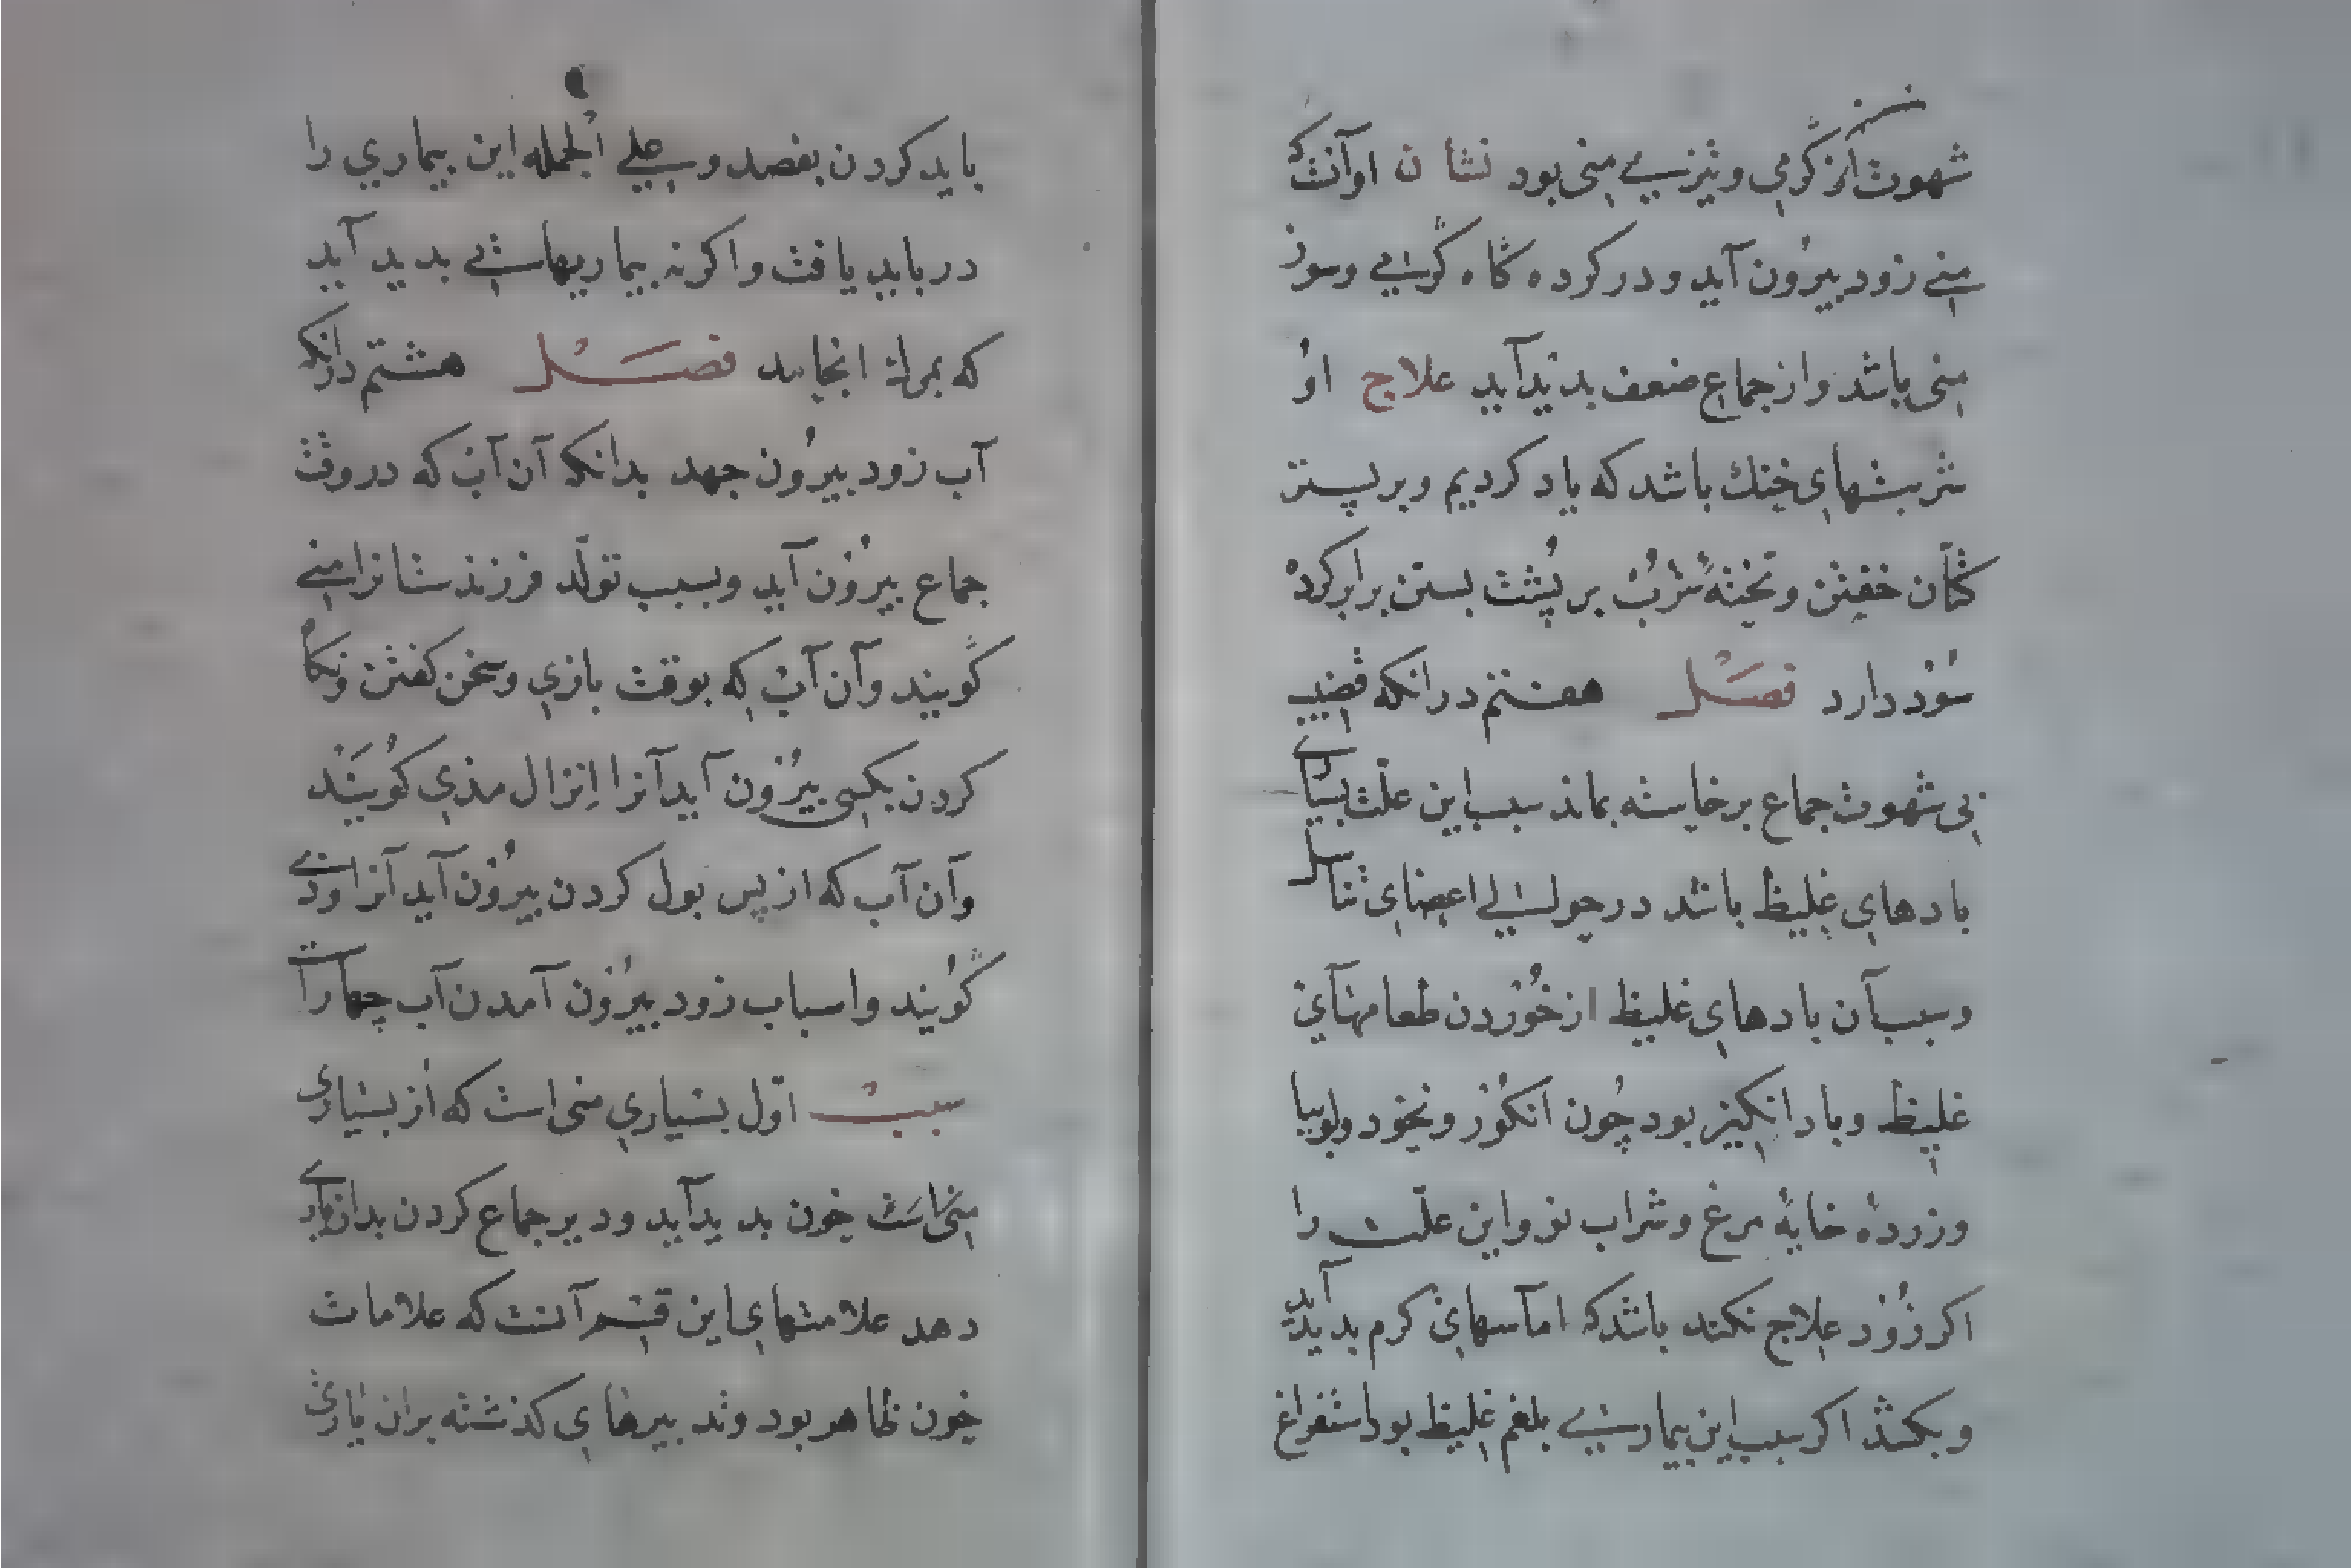 شهوت از گرمی و تیزی منی بود نشان او آنست که
منی زود بیرون آید و در کرده گاه گرمی و سوز
منی باشد و از جماع ضعف بدید آید علاج او
شربتهای خنک باشد که یاد کردیم و بر بستر
کتان خفتن و تخته سُرب بر پشت بستن برابر کرده
سود دارد فصل هفتم در انکه قضیب
بی شهوت جماع برخاسته بماند سبب این علت بسیاری
بادهای غلیظ باشد در حوالی اعضای تناسل
و سبب آن بادهای غلیظ از خوردن طعامهای
غلیظ و باد انکیز بود چون انکور و نخود و لوبیا
و زرده خایه مرغ و شراب نو و این علت را
اکر زود علاج نکند باشد که اماسهای کرم بدید آید
و بکشد اکر سبب این بیماری بلغم غلیظ بود استفراغ
باید کردن بفصد و علی الجمله این بیماری را
در باید یافت و اکرنه بیماریهای بدید آید
که بمرک انجامد فصل هشتم در انکه
آب زود بیرون جهد بدانکه آن آب که در وقت
جماع بیرون آید و بسبب تولّد فرزند است انرا منی
گویند و آن آب که بوقت بازی و سخن کفتن و نکاه
کردن بکسی بیرون آید آنرا اِنزال مذی کویَند
و آن آب که از پس بول کردن بیرون آید آنرا ودی
گویند و اسباب زود بیرون آمدن آب چهار است
سبب اوّل بسیاری منی است که از بسیاری
منی است خون بدید آید و دیر جماع کردن بدان یاری
دهد علامتهای این قسم آنست که علامات
خون ظاهر بود و تدبیرهای کذشته بران یاری